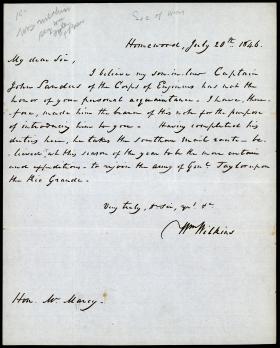 Homewood, July 20th 1846.
My dear Sir,
I believe my son-in-law Captain
John Sanders of the Corps of Engineers has not the
honor of your personal acquaintance. I have, there-
fore, made him the bearer of this note for the purpose
of introducing him to you. Having completed his
duties here, he takes the southern mail route - be-
lieved, at this season of the year to be the more certain
and expeditious - to rejoin the army of Genl. Taylor upon
the Rio Grande.
Very truly, Dr Sir, yrs &c
Wm Wilkins
Hon. Mr. Marcy.